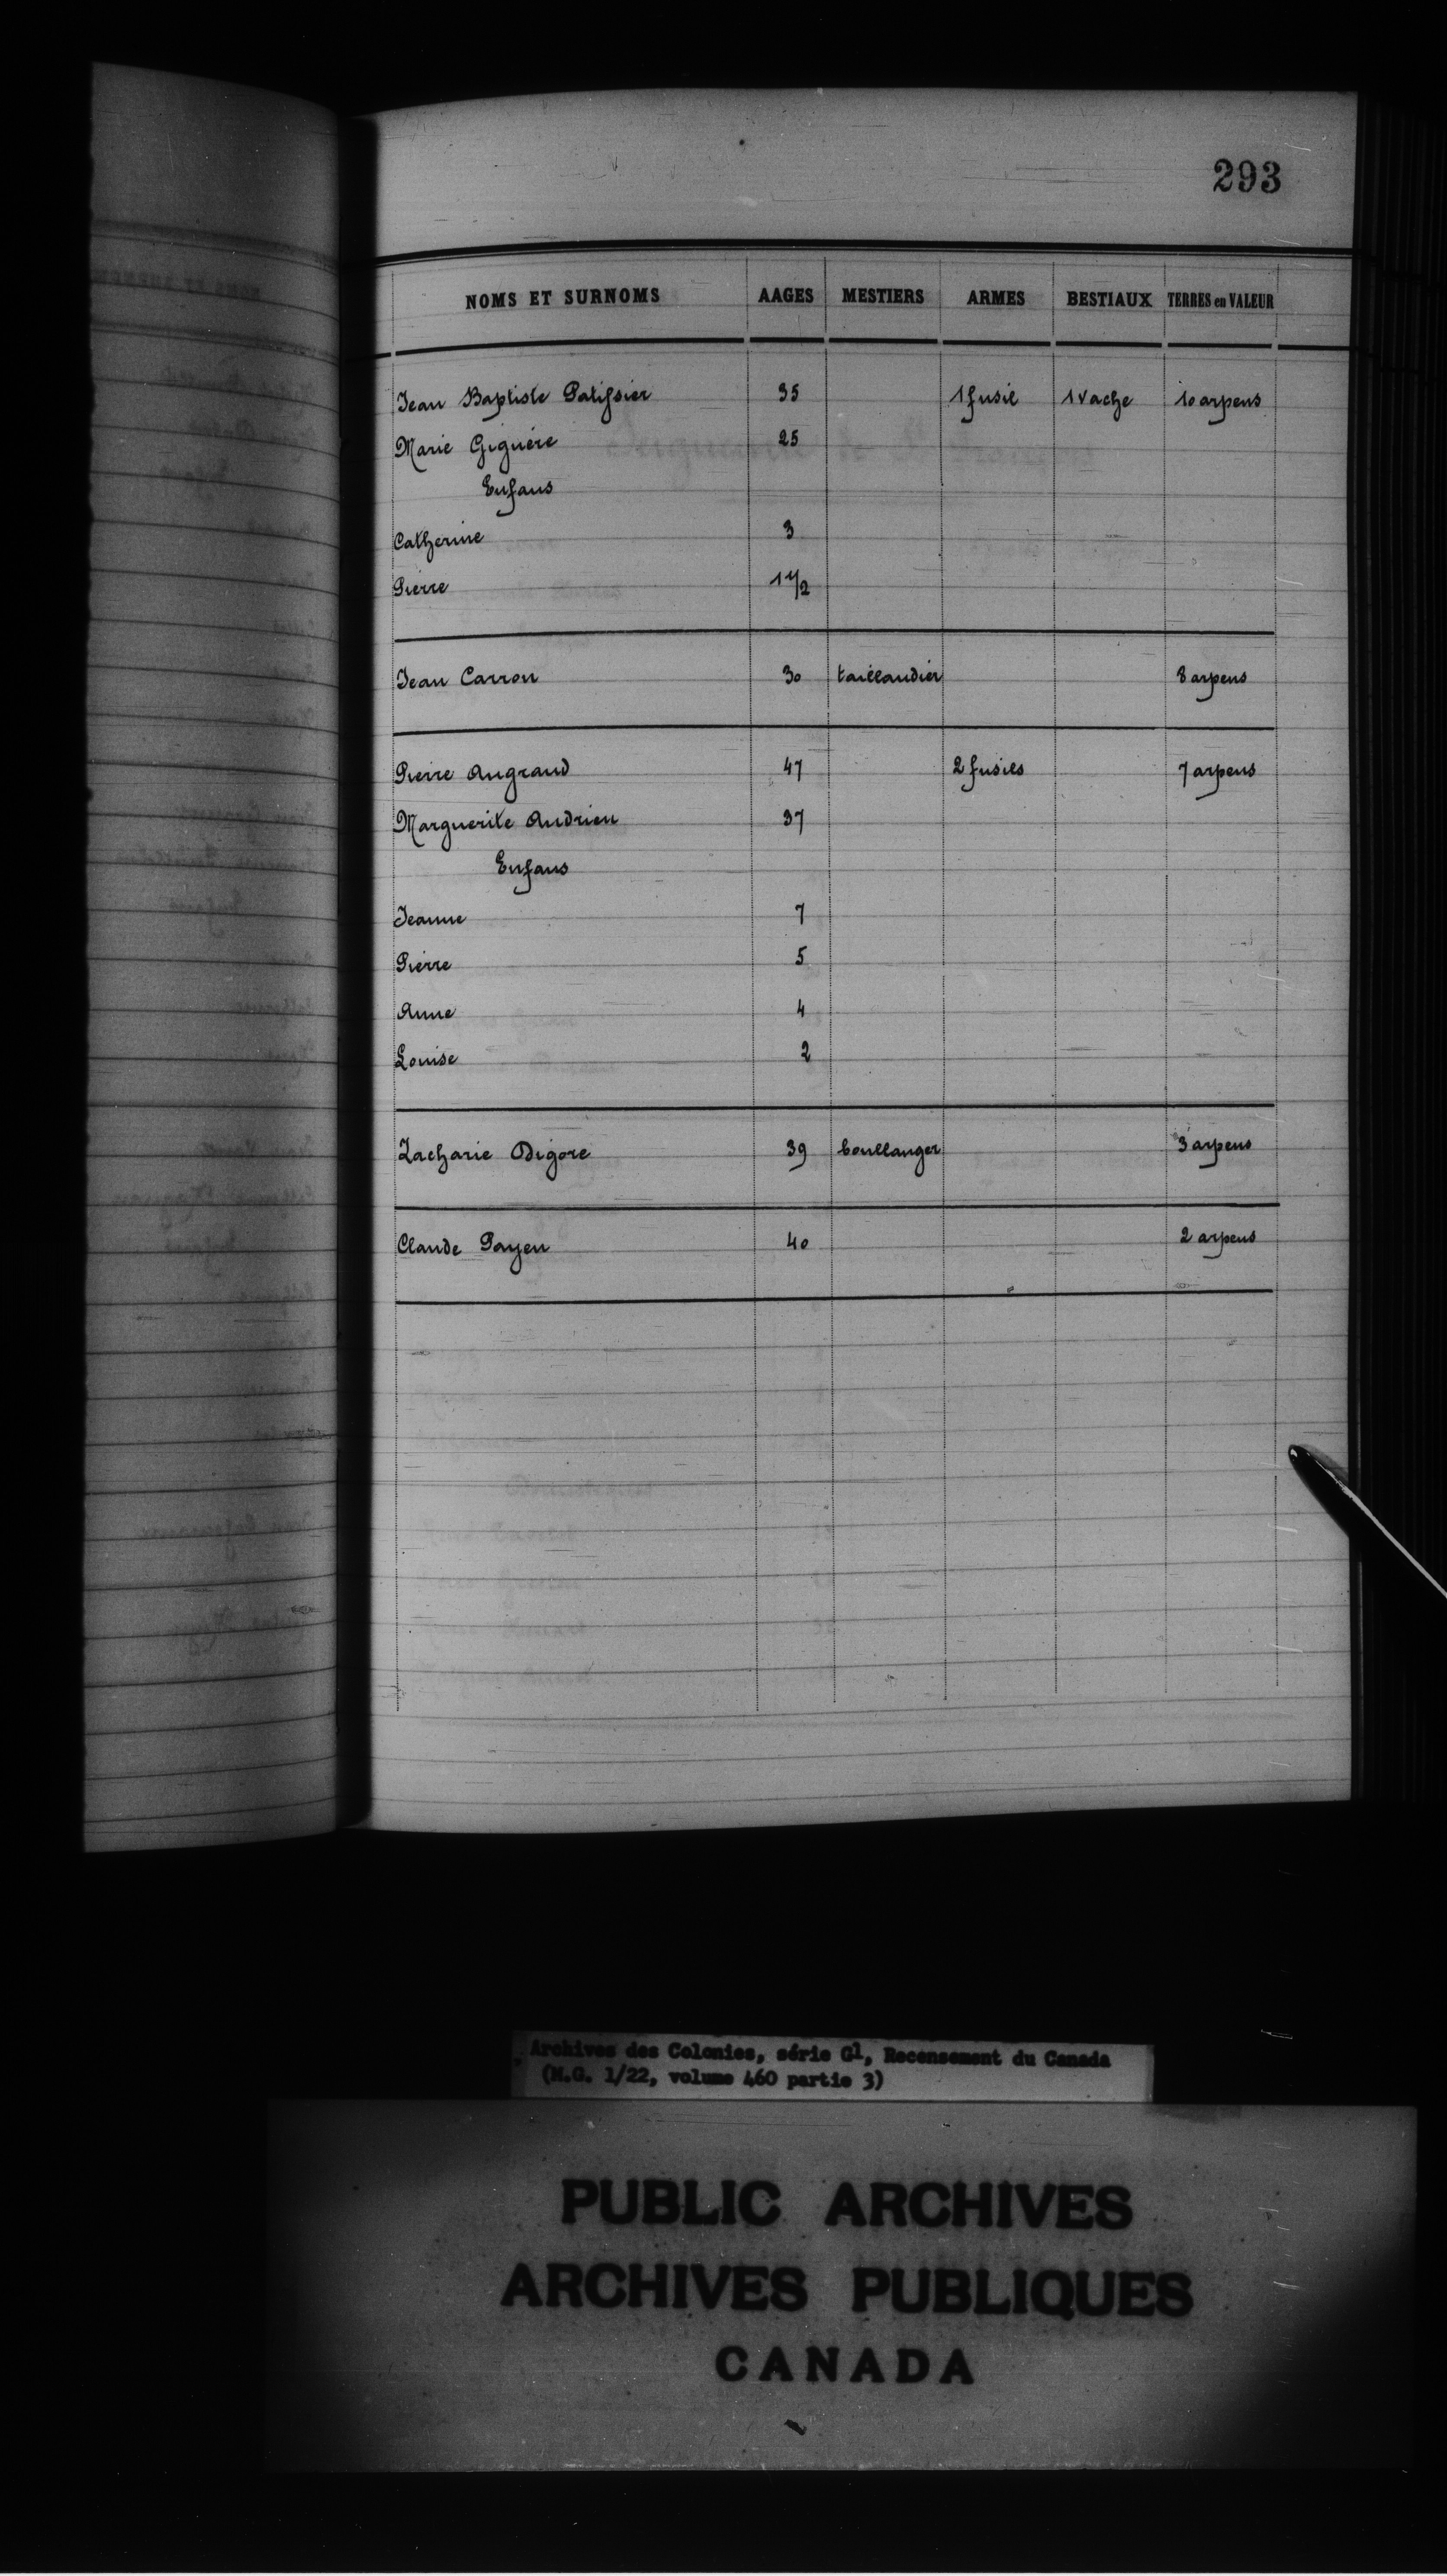 293
NOMS ET SURNOMS AAGES MESTIERS ARMES BESTIAUX TERRES en VALEUR
Jean Baptiste Patissier 35 1 fusil 1 Vache 10 arpens
Marie Giguère 25
Enfans
Catherine 3
Pierre 1 1/2
Jean Carron 30 taillandier 8 arpens
Pierre Augrand 47 2 fusils 7 arpens
Marguerite Andrieu 37
Enfans
Jeanne 7
Pierre 5
Anne 4
Louise 2
Zacharie Digore 39 boullanger 3 arpens
Claude Payen 40 2 arpens
Archives des Colonies, série G1, Recensement du Canada
(M.G. 1/22, volume 460 partie 3)
PUBLIC ARCHIVES
ARCHIVES PUBLIQUES
CANADA